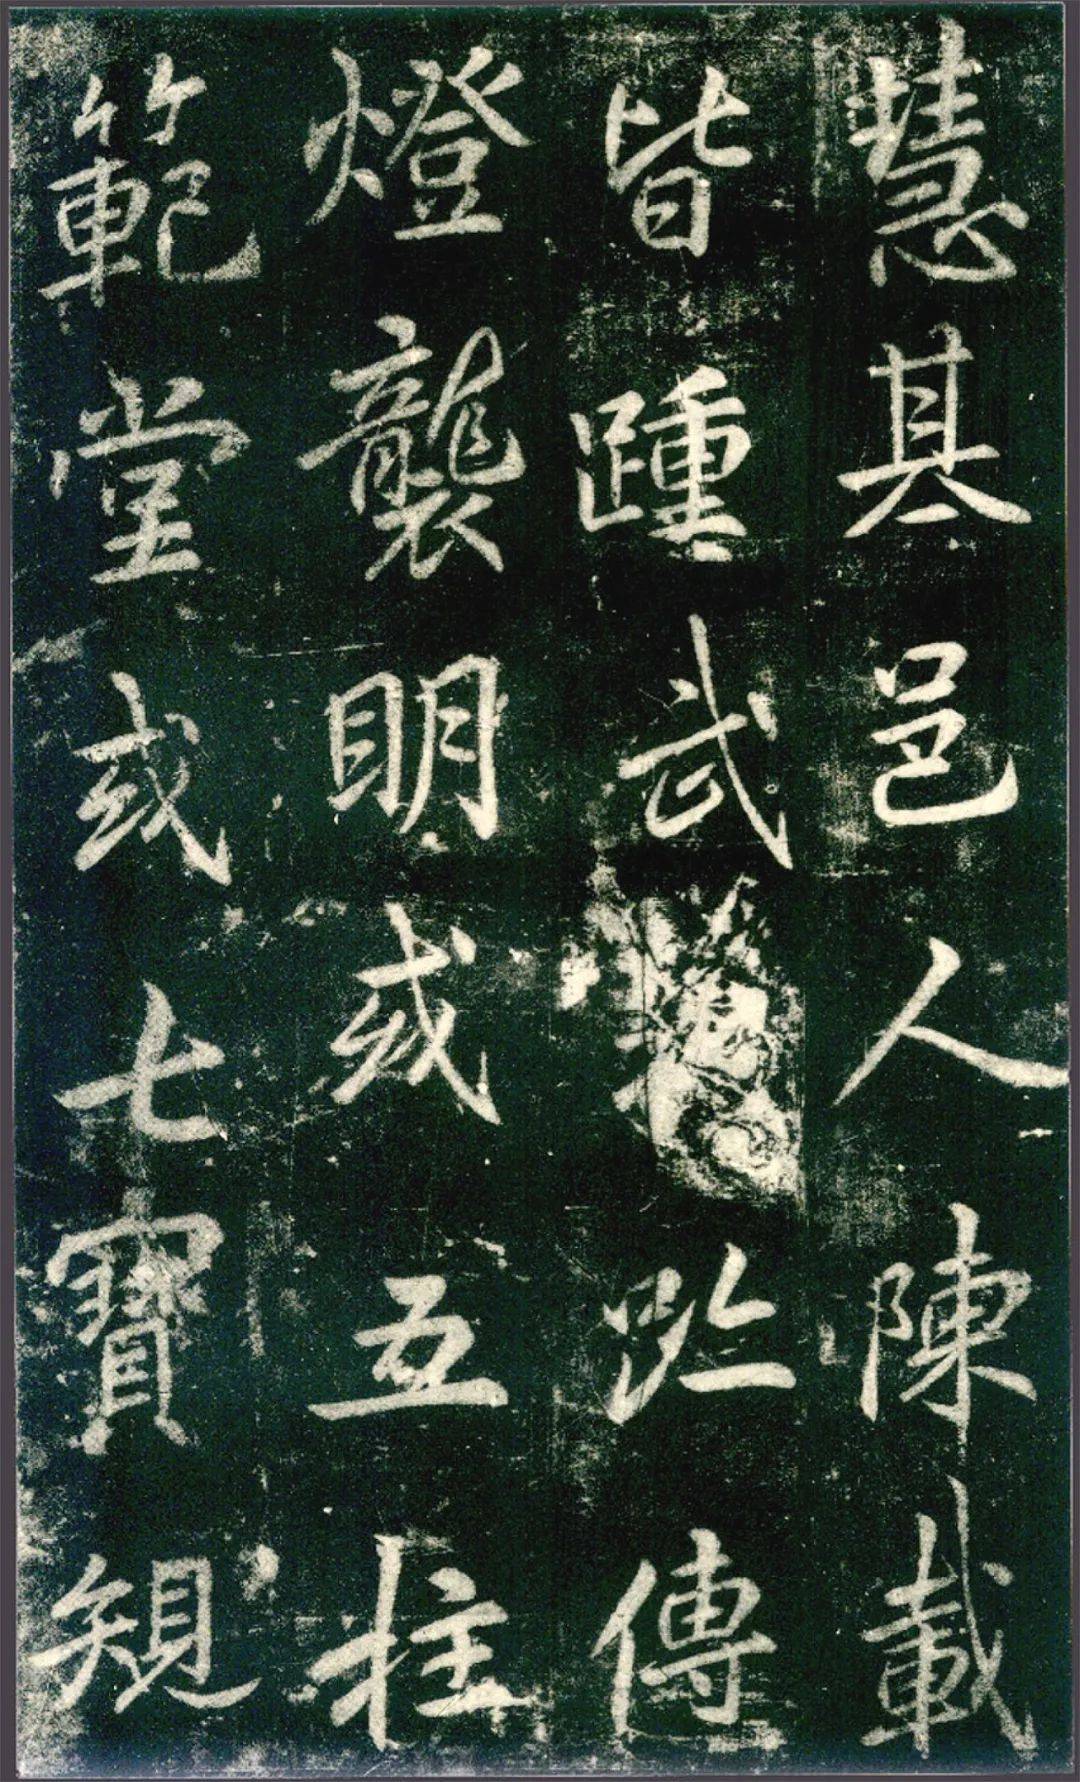 慧基邑人陳載
皆踵武趾傳
燈襲明或五柱
範堂或七寶規